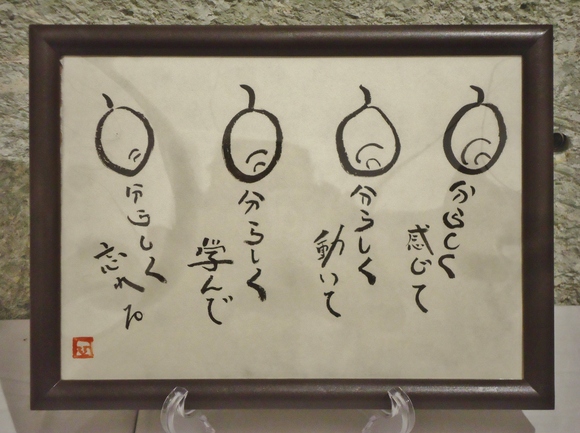 自分らしく
感じて
自分らしく
動いて
自分らしく
学んで
自分らしく
忘れた